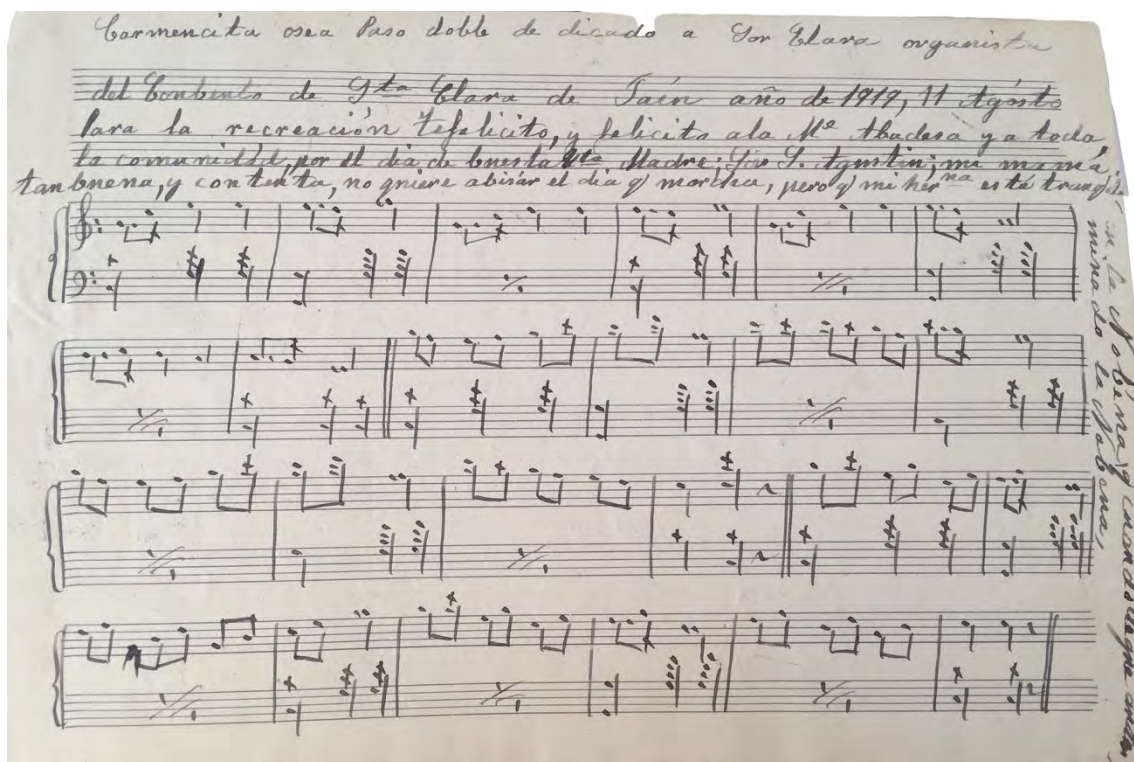 Carmencita osea Paso doble de dicado a Sor Clara organista
del Conbento de Sta Clara de Jaén año de 1919, 11 Agósto
Para la recreación Tefelicito, y felicito ala Mᵉ Abadesa y a toda,
la comunidad, por el dia de buestra Madre; Sor S. Agustin; mi mamá,
tan buena, y contenta, no quiere abisár el dia q'
pero q' mi herⁿᵃ está
en la Nobéna,
minado la Nobena,